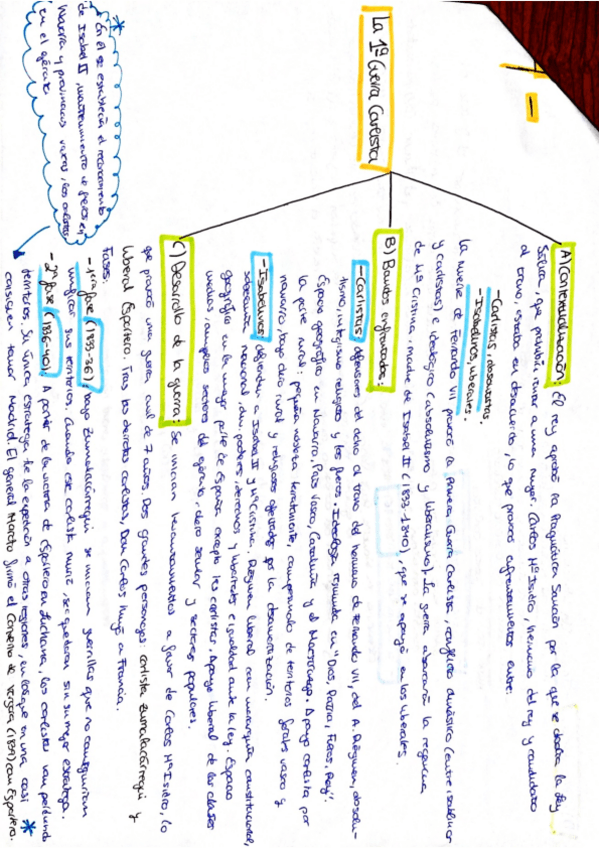 La 1ª Guerra Carlista
A) Contextualización: El rey aprobó la Pragmática Sanción por la que se abolía la Ley
Sálica, que prohibía reinar a una mujer. Carlos Mª Isidro, hermano del rey y candidato
al trono, estaba en desacuerdo, lo que provocó enfrentamientos entre:
- Carlistas, absolutistas.
- Isabelinos, liberales.
La muerte de Fernando VII provocó la Primera Guerra Carlista, conflicto dinástico (entre isabelinos
y carlistas) e ideológico (absolutismo y liberalismo). La guerra abarcará la regencia
de Mª Cristina, madre de Isabel II (1833-1840), que se apoyó en los liberales.
B) Bandos enfrentados:
- Carlistas: defensores del derecho al trono del hermano de Fernando VII, del A. Régimen, absolu-
tismo, integrismo religioso y los fueros. Ideología resumida en "Dios, Patria, Fueros, Rey".
Espacio geográfico en Navarra, País Vasco, Cataluña y el Maestrazgo. Apoyo carlista por
la parte rural, pequeña nobleza terrateniente, campesinado de territorios forales vasco y
navarro, bajo clero rural y religiosos afectados por la desamortización.
- Isabelinos: defienden a Isabel II y Mª Cristina. Régimen liberal con monarquía constitucional,
soberanía nacional, div. poderes, derechos y libertades e igualdad ante la ley. Espacio
geográfico en la mayor parte de España excepto los carlistas. Apoyo liberal de las clases
medias, amplios sectores del ejército, clero secular y sectores populares.
C) Desarrollo de la guerra: Se inician levantamientos a favor de Carlos Mª Isidro, lo
que provocó una guerra civil de 7 años. Dos grandes personajes: carlista Zumalacárregui y
liberal Espartero. Tras las derrotas carlistas, Don Carlos huyó a Francia.
Fases:
- 1era fase (1833-36): bajo Zumalacárregui se inician guerrillas que no consiguieron
unificar sus territorios. Cuando este carlista murió, se quedaron sin su mejor estratega.
- 2ª fase (1836-40): A partir de la victoria de Espartero en Luchana, los carlistas van perdiendo
territorios. Su única estrategia fue la expedición a otras regiones, en las que en una casi
consiguen tomar Madrid. El general Maroto firmó el Convenio de Vergara (1839) con Espartero. *
* En él se establecía el reconocimiento
de Isabel II, mantenimiento de fueros en
Navarra y provincias vascas, los carlistas
en el ejército